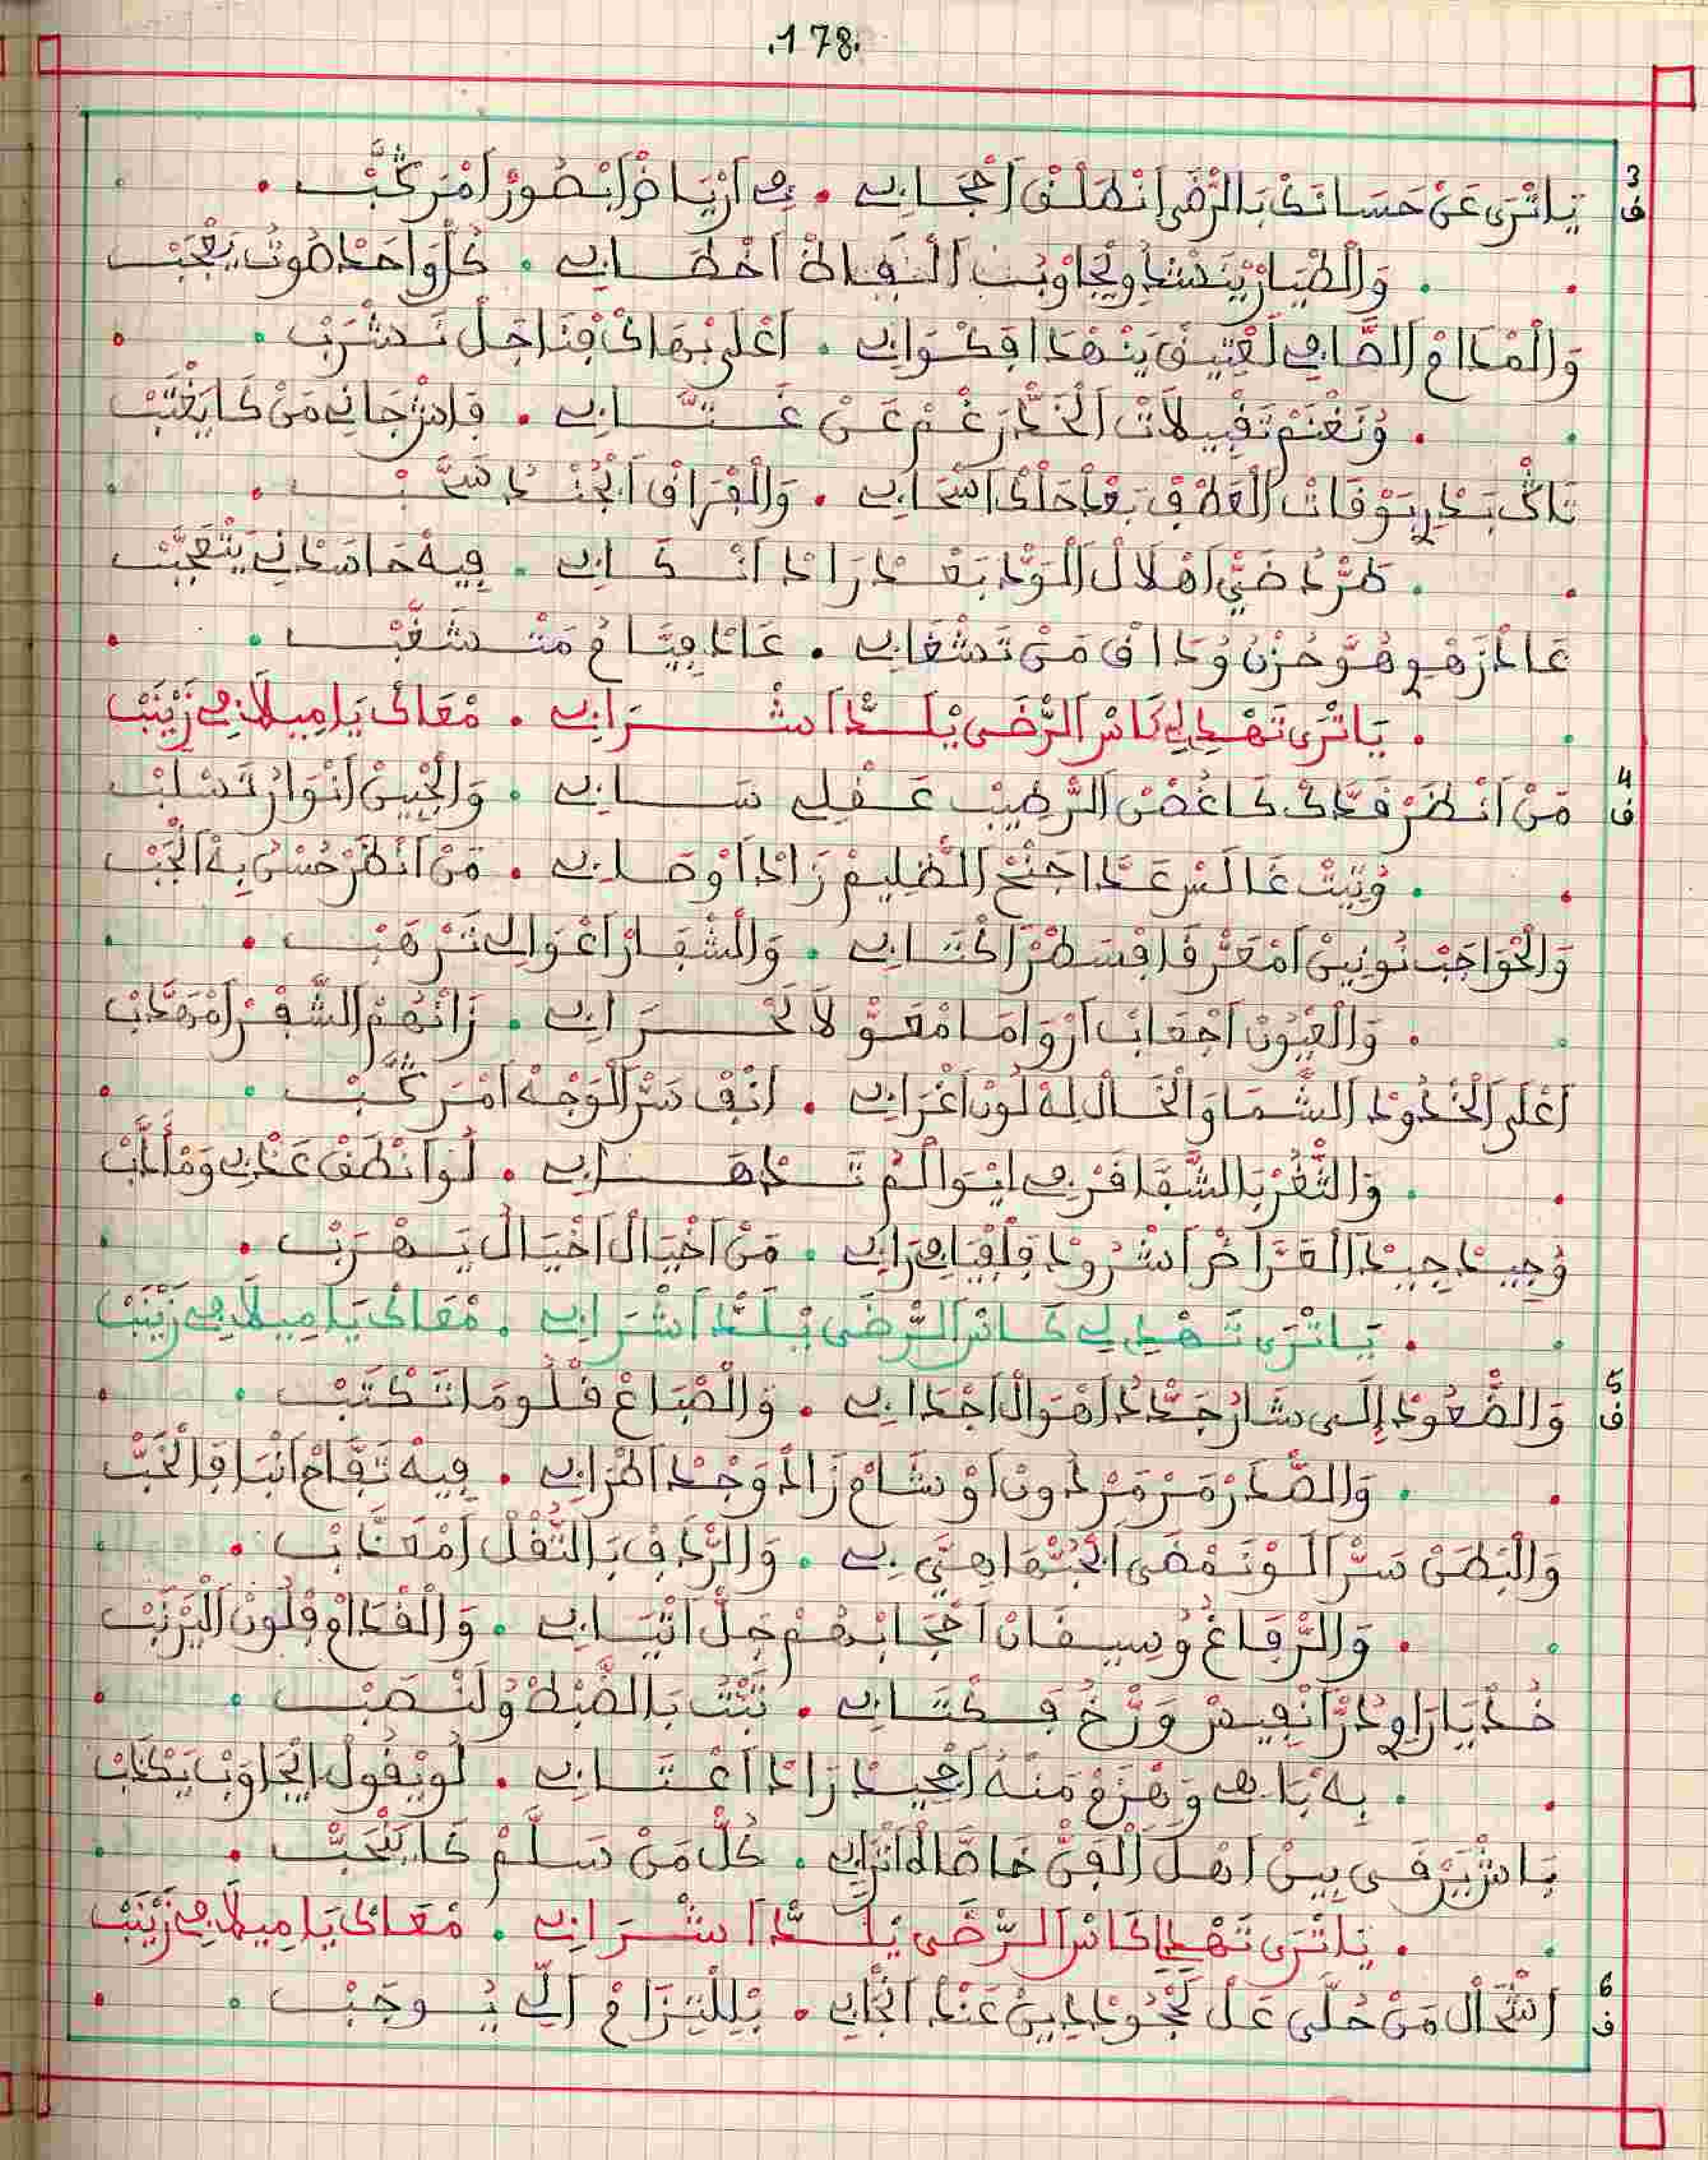 .178.
3 ف يَاتْرَى عَنْ حَسَانَكْ بَالرّْضَى انْهَلْفْ احْجَابِي . فِي ارْيَاضْ ابْصُورْ امْرَكَّبْ .
. وَالْطْيَارْ يَنْشَدْ ويْجَاوْبُ الْفَاظْ اخْطَابِي . كُلّْ وَاحَدْ صُوتُ يَعْجَبْ
وَالْمْدَامْ الصَّافِي لَعْتِيقْ يَنْهْدَا افْكْوَابِي . اعْلَى بْهَاكْ فْنَاجَلْ نَشْرَبْ
. وُنَغْنَمْ تَقْبِيلَاتْ الْخَدّْ رَغْمْ عَنْ عَتَّابِي . فَاشْ جَانِي مَنْ كَا يَعْتَبْ
تَاكْ بَدْرِي بَوْفَاتْ الْعَطْفْ بَعْدْ حَلْكْ اسْحَابِي . وَالْفْرَاقْ ابْجُنْدُ سَحَّبْ .
. طَرّْدُ ضَيّْ اهْلَالْ الْوَدّْ بَعْدْ رَادْ انْكَابِي . فِيهْ حَاسْدْنِي يَتْعَجَّبْ
عَادْ زَهْوِي هُوَ حُزْنُ وُدَاقْ مَنْ تَشْغَابِي . عَادْ فِيَّامُ مَتْشَغَّبْ
. يَاتْرَى تَهْدِي لِي كَاسْ الرّْضَى يْلَدّْ اشْرَابِي . مْعَاكْ يَا مِيلَافِي زَيْنَبْ
4 ف مَنْ انْظَرْ قَدَّكْ كَا غُصْنْ الرّْطِيبْ عَقْلِي سَابِي . وَالْجْبِينْ انْوَارُ تَسْلَبْ
. وُتِيتْ غَالَسْ عَدَّا جَنْحْ الظْلِيمْ زَادْ اوْصَابِي . مَنْ انْظَرْ حُسْنُ بِهْ انْجَبْ
وَالْحْوَاجَبْ نُونِينْ امْعَرّْقَا افْسَطْرْ اكْتَابِي . وَالْشْفَارْ اعْوَالِي تَرْهَبْ .
. وَالْعْيُونْ اجْعَابْ ارْوَامَا مْعَوّْلَا لَحْرَابِي . زَانْهُمْ الشّْفْرْ امْهَدَّبْ
اعْلَى الْخْدُودْ الشَّمَا وَالْخَالْ لِهْ لُونْ اغْرَابِي . انْفْ سَرّْ الْوَجْهْ امْرَكَّبْ
. وَالثّْغْرْ بَالشّْقَاقَرْ فِي ايْوَالْمْ تَدْهَابِي . لُو انْطَقْ عَدْبِي وَمْأَدَّبْ
وُجِيدْ جِيدْ الْقَرَّاضْ اشْرُودْ فَلْفْيَافِي رَابِي . مَنْ اخْيَالْ اخْيَالُ يَهْرَبْ .
. يَاتْرَى تَهْدِي لِي كَاسْ الرّْضَى يْلَدّْ اشْرَابِي . مْعَاكْ يَا مِيلَافِي زَيْنَبْ
5 ف وَالضّْعُودْ إِلَى شَارُ جَدّْدُ اهْوَالْ اجْدَابِي . وَالْصْبَاعْ قْلُومَا تَكْتَبْ
. وَالصّْدَرْ مَرْمَرْ دُونْ اوْشَامْ زَادْ وَجْدْ اطْرَابِي . فِيهْ تَفَّاحْ انْبَا فَالْحَبّْ
وَالْبَطْنْ سَرّْ الَوْ نَمْضَى ابْجَبْهَا هِيَّ بِي . وَالرّْدَفْ بَالثّْقْلْ امْعَدَّبْ .
. وَالرّْفَاغُ وُسِيقَانْ احْجَابْهُمْ جَلّْ اثْيَابِي . وَالْقْدَامْ فْلُونْ الْيَرْنَبْ
خُدْ يَا رَاوِي دُرّْ انْفِيسْ وَرّْخُ فَكْتَابِي . تَبَّتْ بَالضَّبْطْ وُلَنْصَبْ
. بِهْ بَاهِي وَهْزَمْ مَنُّهْ اجْحِيدْ رَادْ اعْتَابِي . لُو يْقُولْ ايْجَاوَبْ يَكْدَبْ
بَاشْ يَرْقَى بِينْ اهْلْ الْفَنّْ خَاصّْ الْاتْرَابِي . كُلّْ مَنْ سَلَّمْ كَا يَتْحَبّْ .
. يَاتْرَى تَهْدِي لِي كَاسْ الرّْضَى يْلَدّْ اشْرَابِي . مْعَاكْ يَا مِيلَافِي زَيْنَبْ
6 ف اشْحَالْ مَنْ حُلَّى عَلْ لَجْدُودْ لِدِينْ عَنْدْ انْجَابِي . بْلِلْتِزَامْ الِّي يُوجَبْ